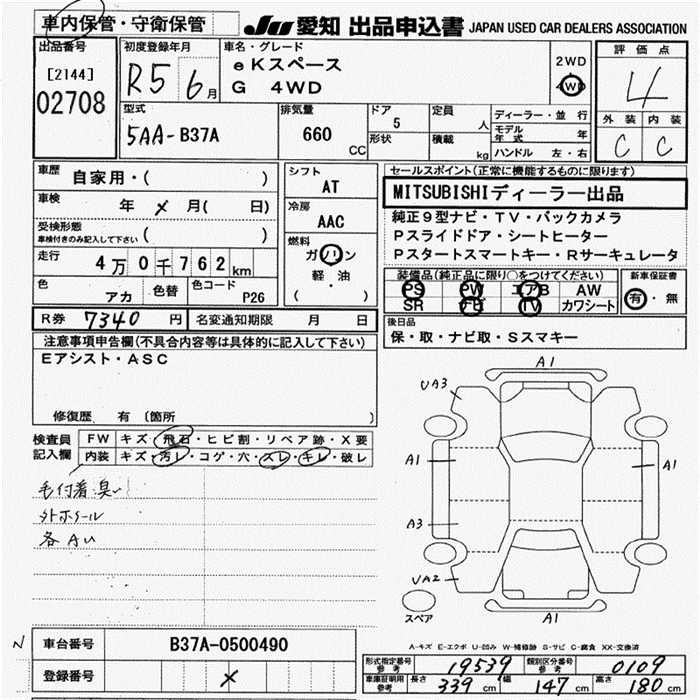 車内保管・守衛保管
JU 愛知 出品申込書 JAPAN USED CAR DEALERS ASSOCIATION
出品番号
[2144]
02708
初度登録年月
R5 6月
車名・グレード
eKスペース
G 4WD
2WD
4WD
評価点
4
外装 内装
C C
型式
5AA-B37A
排気量
660
CC
ドア
5
形状
定員
人
積載
kg
ディーラー・並行
モデル年式 年
ハンドル 左・右
車歴
自家用・( )
車検
年 メ 月( 日)
受検形態
車検付きのみ記入して下さい ( )
走行
4万0千762km
色
アカ
色替
色コード
P26
シフト
AT
冷房
AAC
燃料
ガソリン
軽・油
( )
セールスポイント(正常に機能するものに限ります)
MITSUBISHIディーラー出品
純正9型ナビ・TV・バックカメラ
Pスライドドア・シートヒーター
Pスタートスマートキー・Rサーキュレータ
装備品(純正品に限り○をつけてください)
PS PW エアB AW
SR ナビ TV カワシート
新車保証書
有・無
R券 7340 円
名変通知期限 月 日
後日品
保・取・ナビ取・Sスマキー
注意事項申告欄(不具合内容等は具体的に記入して下さい)
Eアシスト・ASC
修復歴 有 〔箇所 〕
検査員
記入欄
FW キズ・飛石・ヒビ割・リペア跡・X要
内装 キズ・汚レ・コゲ・穴・スレ・キレ・破レ
毛付着臭い
外ホイール
各AU
A1
UA3
A1
A1
A3
UA2
スペア
A1
A-キズ E-エクボ U-凹み W-補修跡 S-サビ C-腐食 XX-交換済
N
車台番号
B37A-0500490
登録番号
メ
形式指定番号
参考
19539
類別区分番号
参考
0109
車庫証明用
参考
長さ 339 cm
幅 147 cm
高さ 180 cm